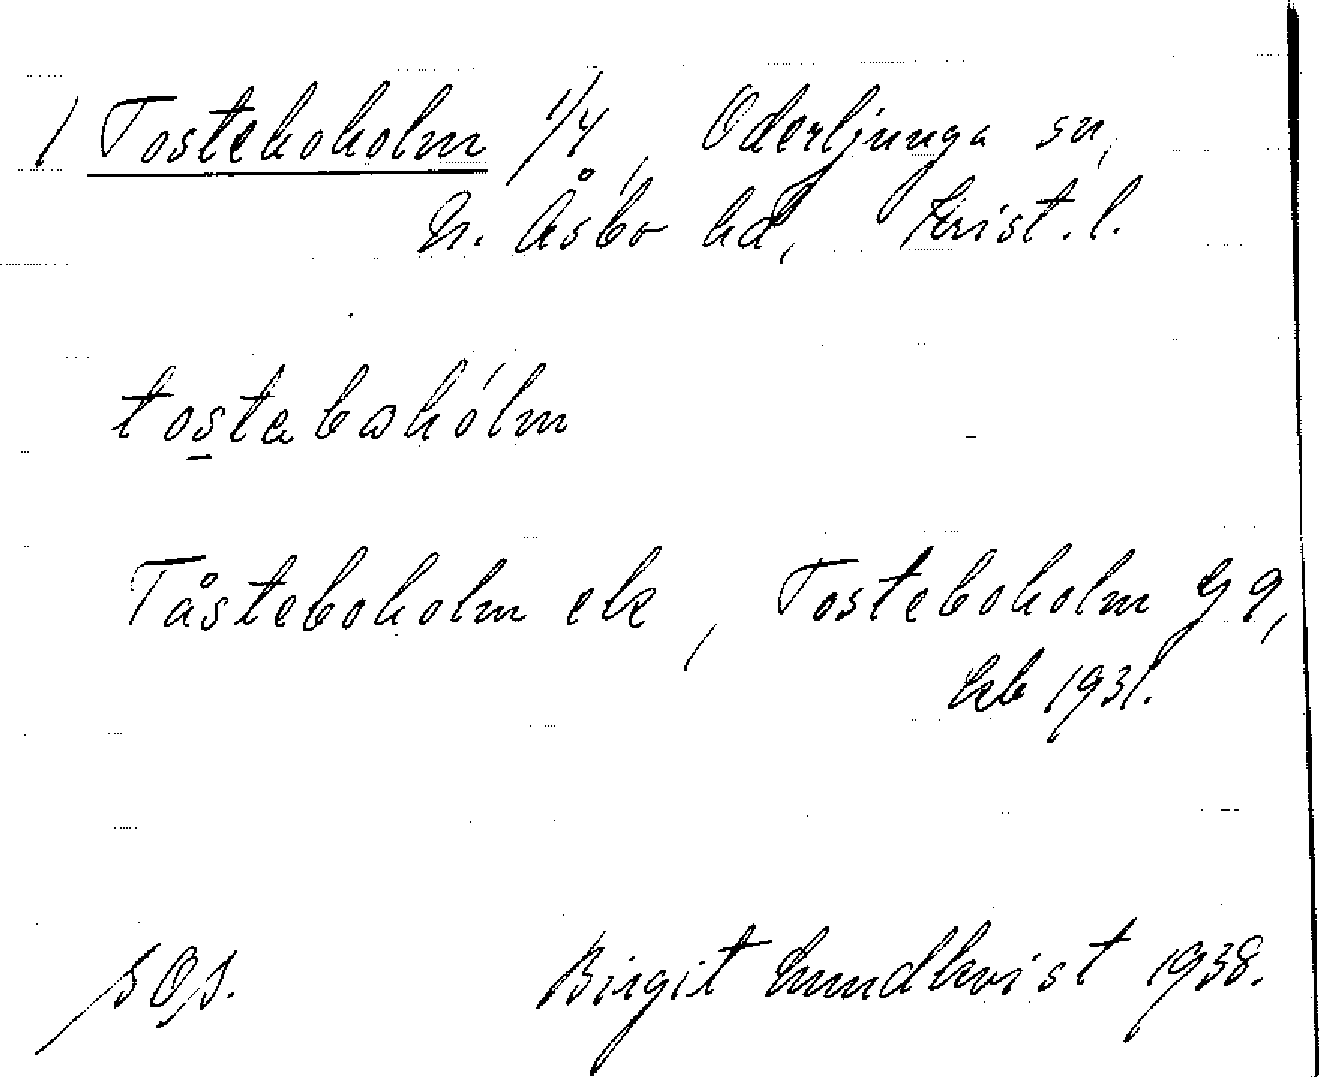 1 Tosteboholm 1/4, Oderljunga sn,
N. Åsbo hd, Krist. l.
tostabohólm
Tåsteboholm ek, Tosteboholm G 9,
kb 1931.
SOS.
Birgit Lundkvist 1938.